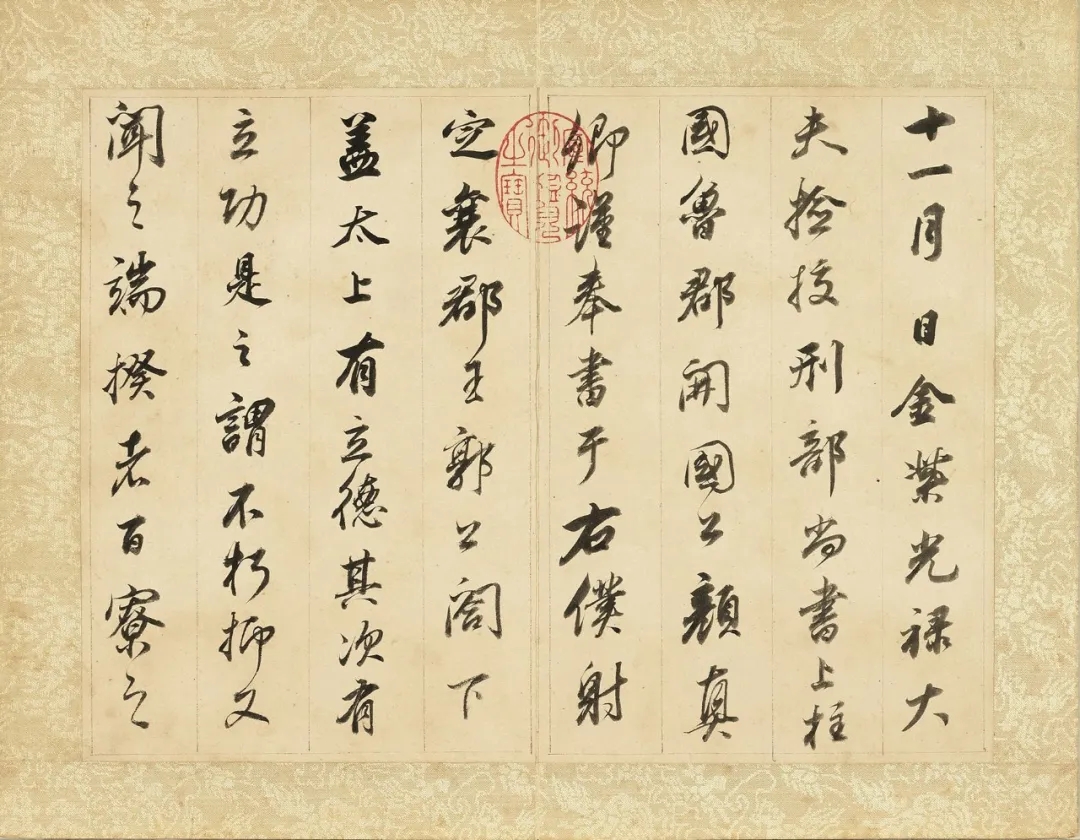 十一月日金紫光禄大
夫撿挍刑部尚書上柱
國魯郡開國公顏真
卿謹奉書于右僕射
定襄郡王郭公閤下
盖太上有立德其次有
立功是之謂不朽抑又
聞之端揆者百寮之
宣統御覽之寶